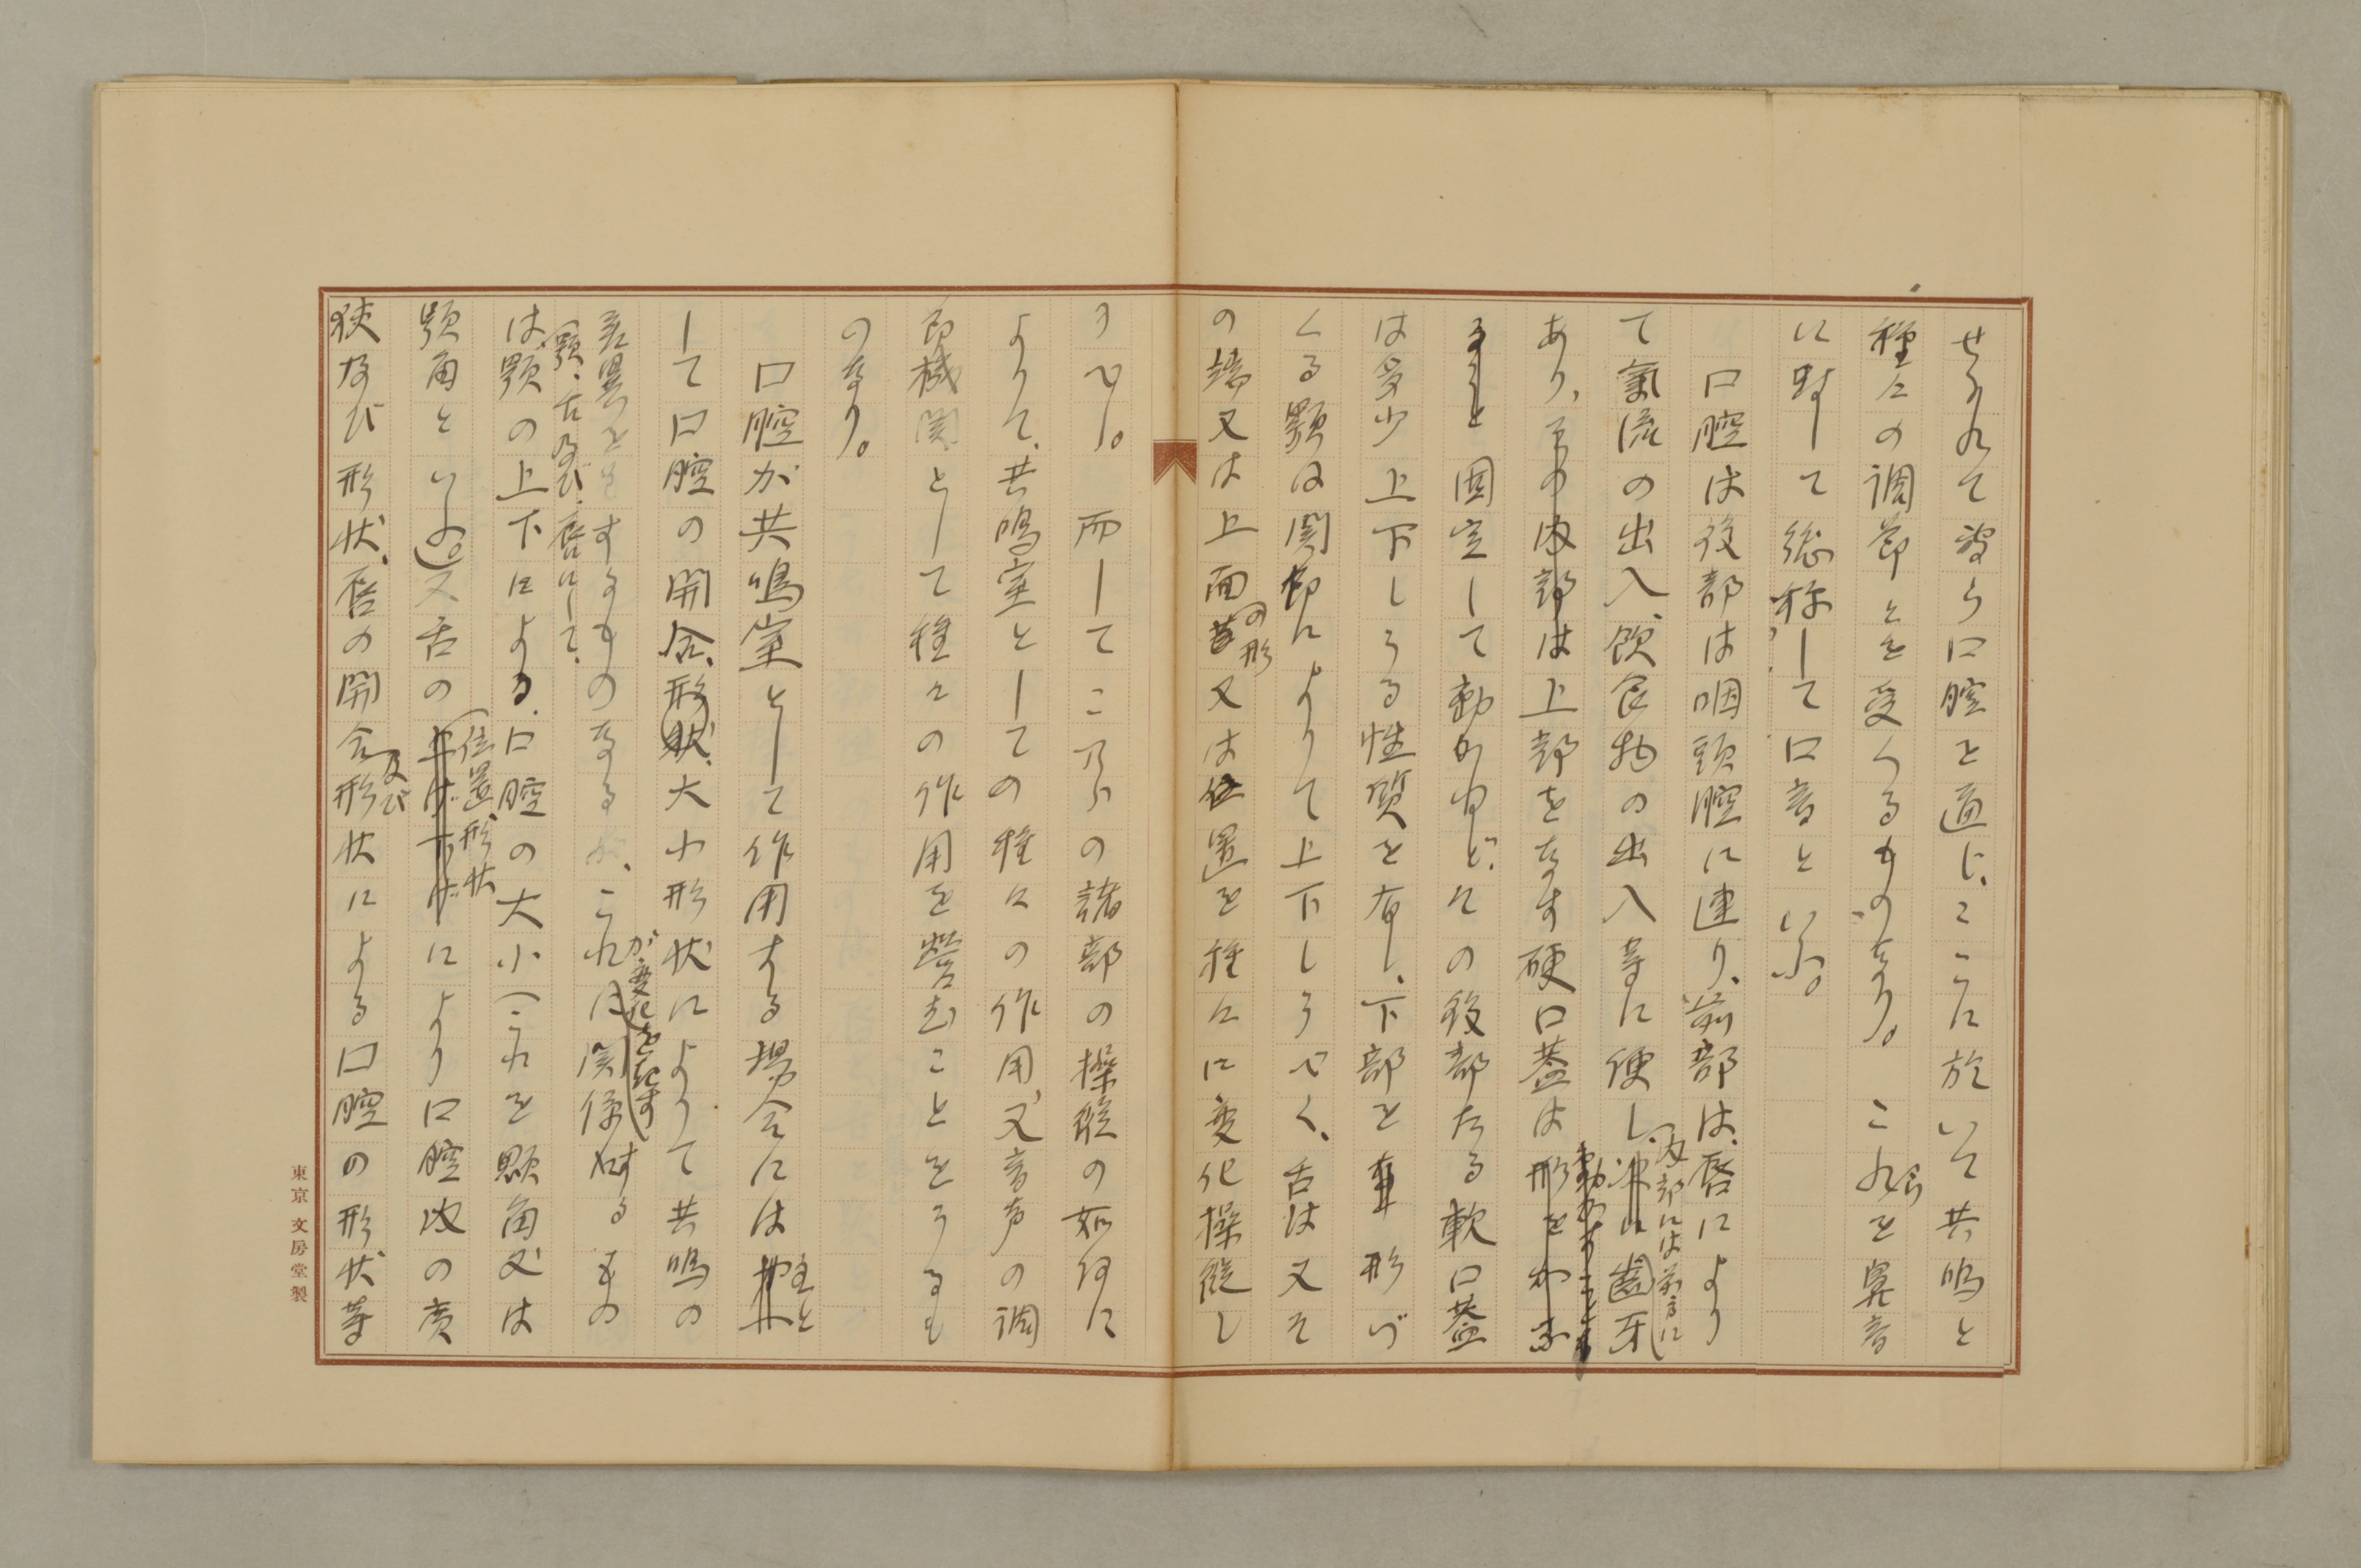 せられて専ら口腔と通じ、ここに於いて共鳴と
種々の調節とを受くるものなり。これらを鼻音
に対して総称して口音といふ。
口腔は後部は咽頭腔に連り、前部は、唇により
て氣流の出入、飲食物の出入等に便し、(内部には前方に歯牙)
あり、その内部は上部をなす硬口蓋は形をかふ
ることと固定して動かねど、その後部たる軟口蓋
は多少上下しうる性質を有し、下部を形づ
くる顎は関節によりて上下しうべく、舌は又そ
の端又は上面の形又は位置を種々に変化操縦し
うべし。而してこれらの諸部の操縦の如何に
よりて、共鳴室としての種々の作用、又音声の調
節機関として種々の作用を営むことをうるも
のなり。
口腔が共鳴室として作用する場合には主と
して口腔の開合、形状、大小形状によりて共鳴の
差異を生ずるものなるが、これが変化を起すは関係するもの
(顎、舌及び唇にして、
は、顎の上下による口腔の大小(これを顎角又は
顎角といふ。)又舌の(位置形状により口腔内の廣
狭及び形状、唇の開合及び形状による口腔の形状等
東京 文房堂製